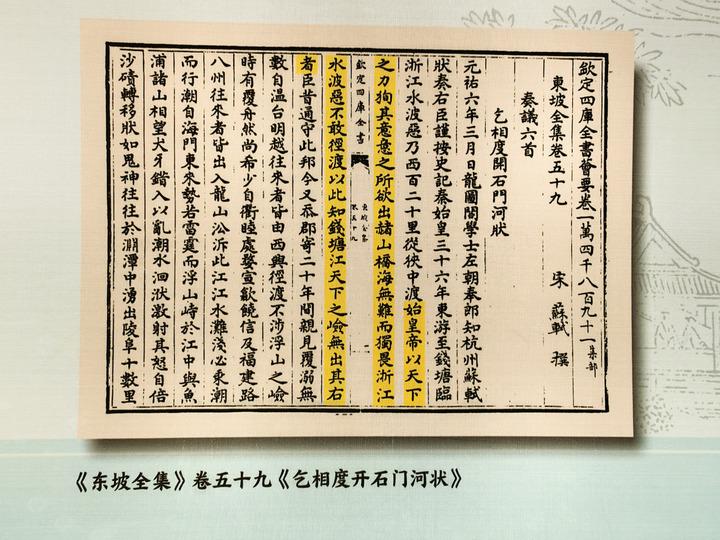 欽定四庫全書薈要卷一萬四千八百九十一集部
東坡全集卷五十九
宋 蘇軾 撰
奏議六首
乞相度開石門河狀
元祐六年三月日龍圖閣學士左朝奉郎知杭州蘇軾
狀奏右臣謹按史記秦始皇三十六年東游至錢塘臨
浙江水波惡乃西百二十里從狹中渡始皇帝以天下
之力徇其意意之所欲出諸山橋海無難而獨畏浙江
水波惡不敢徑渡以此知錢塘江天下之嶮無出其右
欽定四庫全書
東坡全集
卷五十九
者臣昔通守此邦今又忝郡寄二十年間親見覆溺無
數自溫台明越往來者皆由西興徑渡不涉浮山之嶮
時有覆舟然尚希少自衢睦處婺宣歙饒信及福建路
八州往來者皆出入龍山沿泝此江江水灘淺必乘潮
而行潮自海門東來勢若雷霆而浮山峙於江中與魚
浦諸山相望犬牙錯入以亂潮水洄洑激射其怒自倍
沙磧轉移狀如鬼神往往於淵潭中湧出陵阜十數里
《东坡全集》卷五十九《乞相度开石门河状》